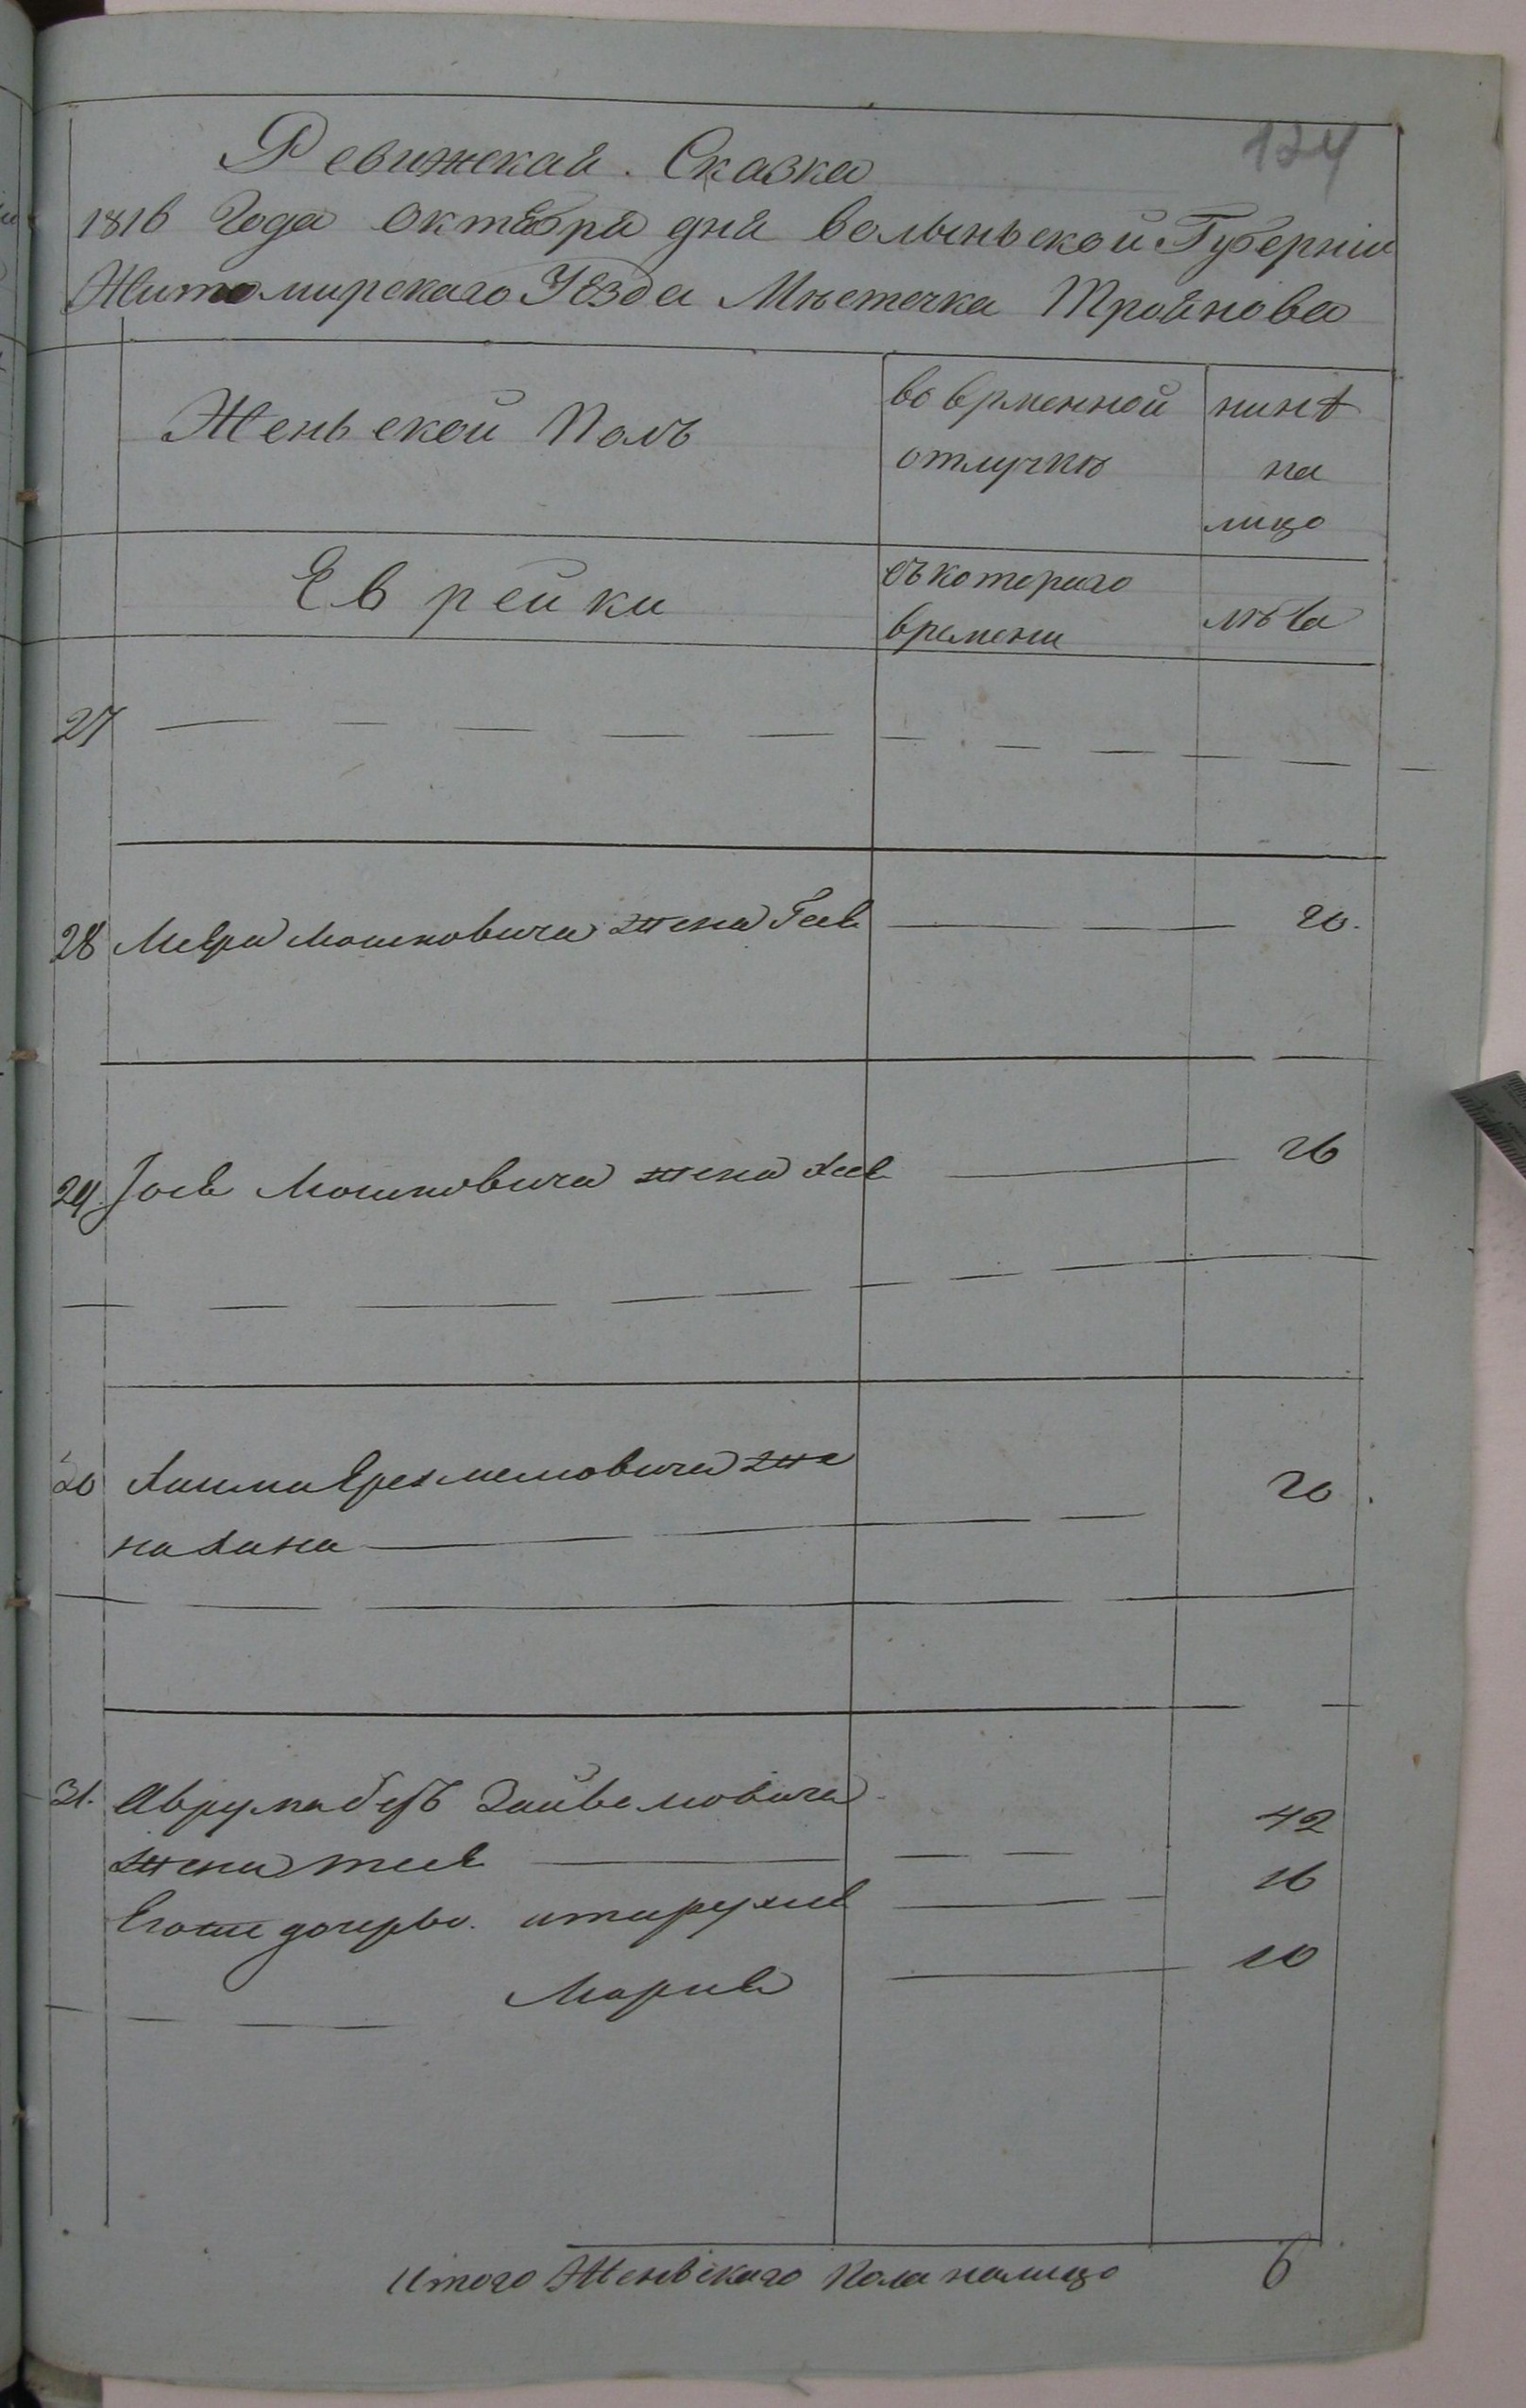 124
Ревижская. Сказка
1816 Года октября дня волыньской Губерніи
Житомирскаго Уѣзда Мѣстечка Троянова
Женьской Полъ
во врменной
отлучкѣ
нинѣ
на
лицо
Еврейки
съ котораго
времени
лѣта
27
28 Меера Мошковича жена Гея 20.
29. Іося Мошковича жена Хая 26
30 Хаима жена Хана 20
31. Аврума Зайвеловича
жена 42
Егоже дочерь. 16
Маріе 10
Итого Женьскаго Пола налицо 6